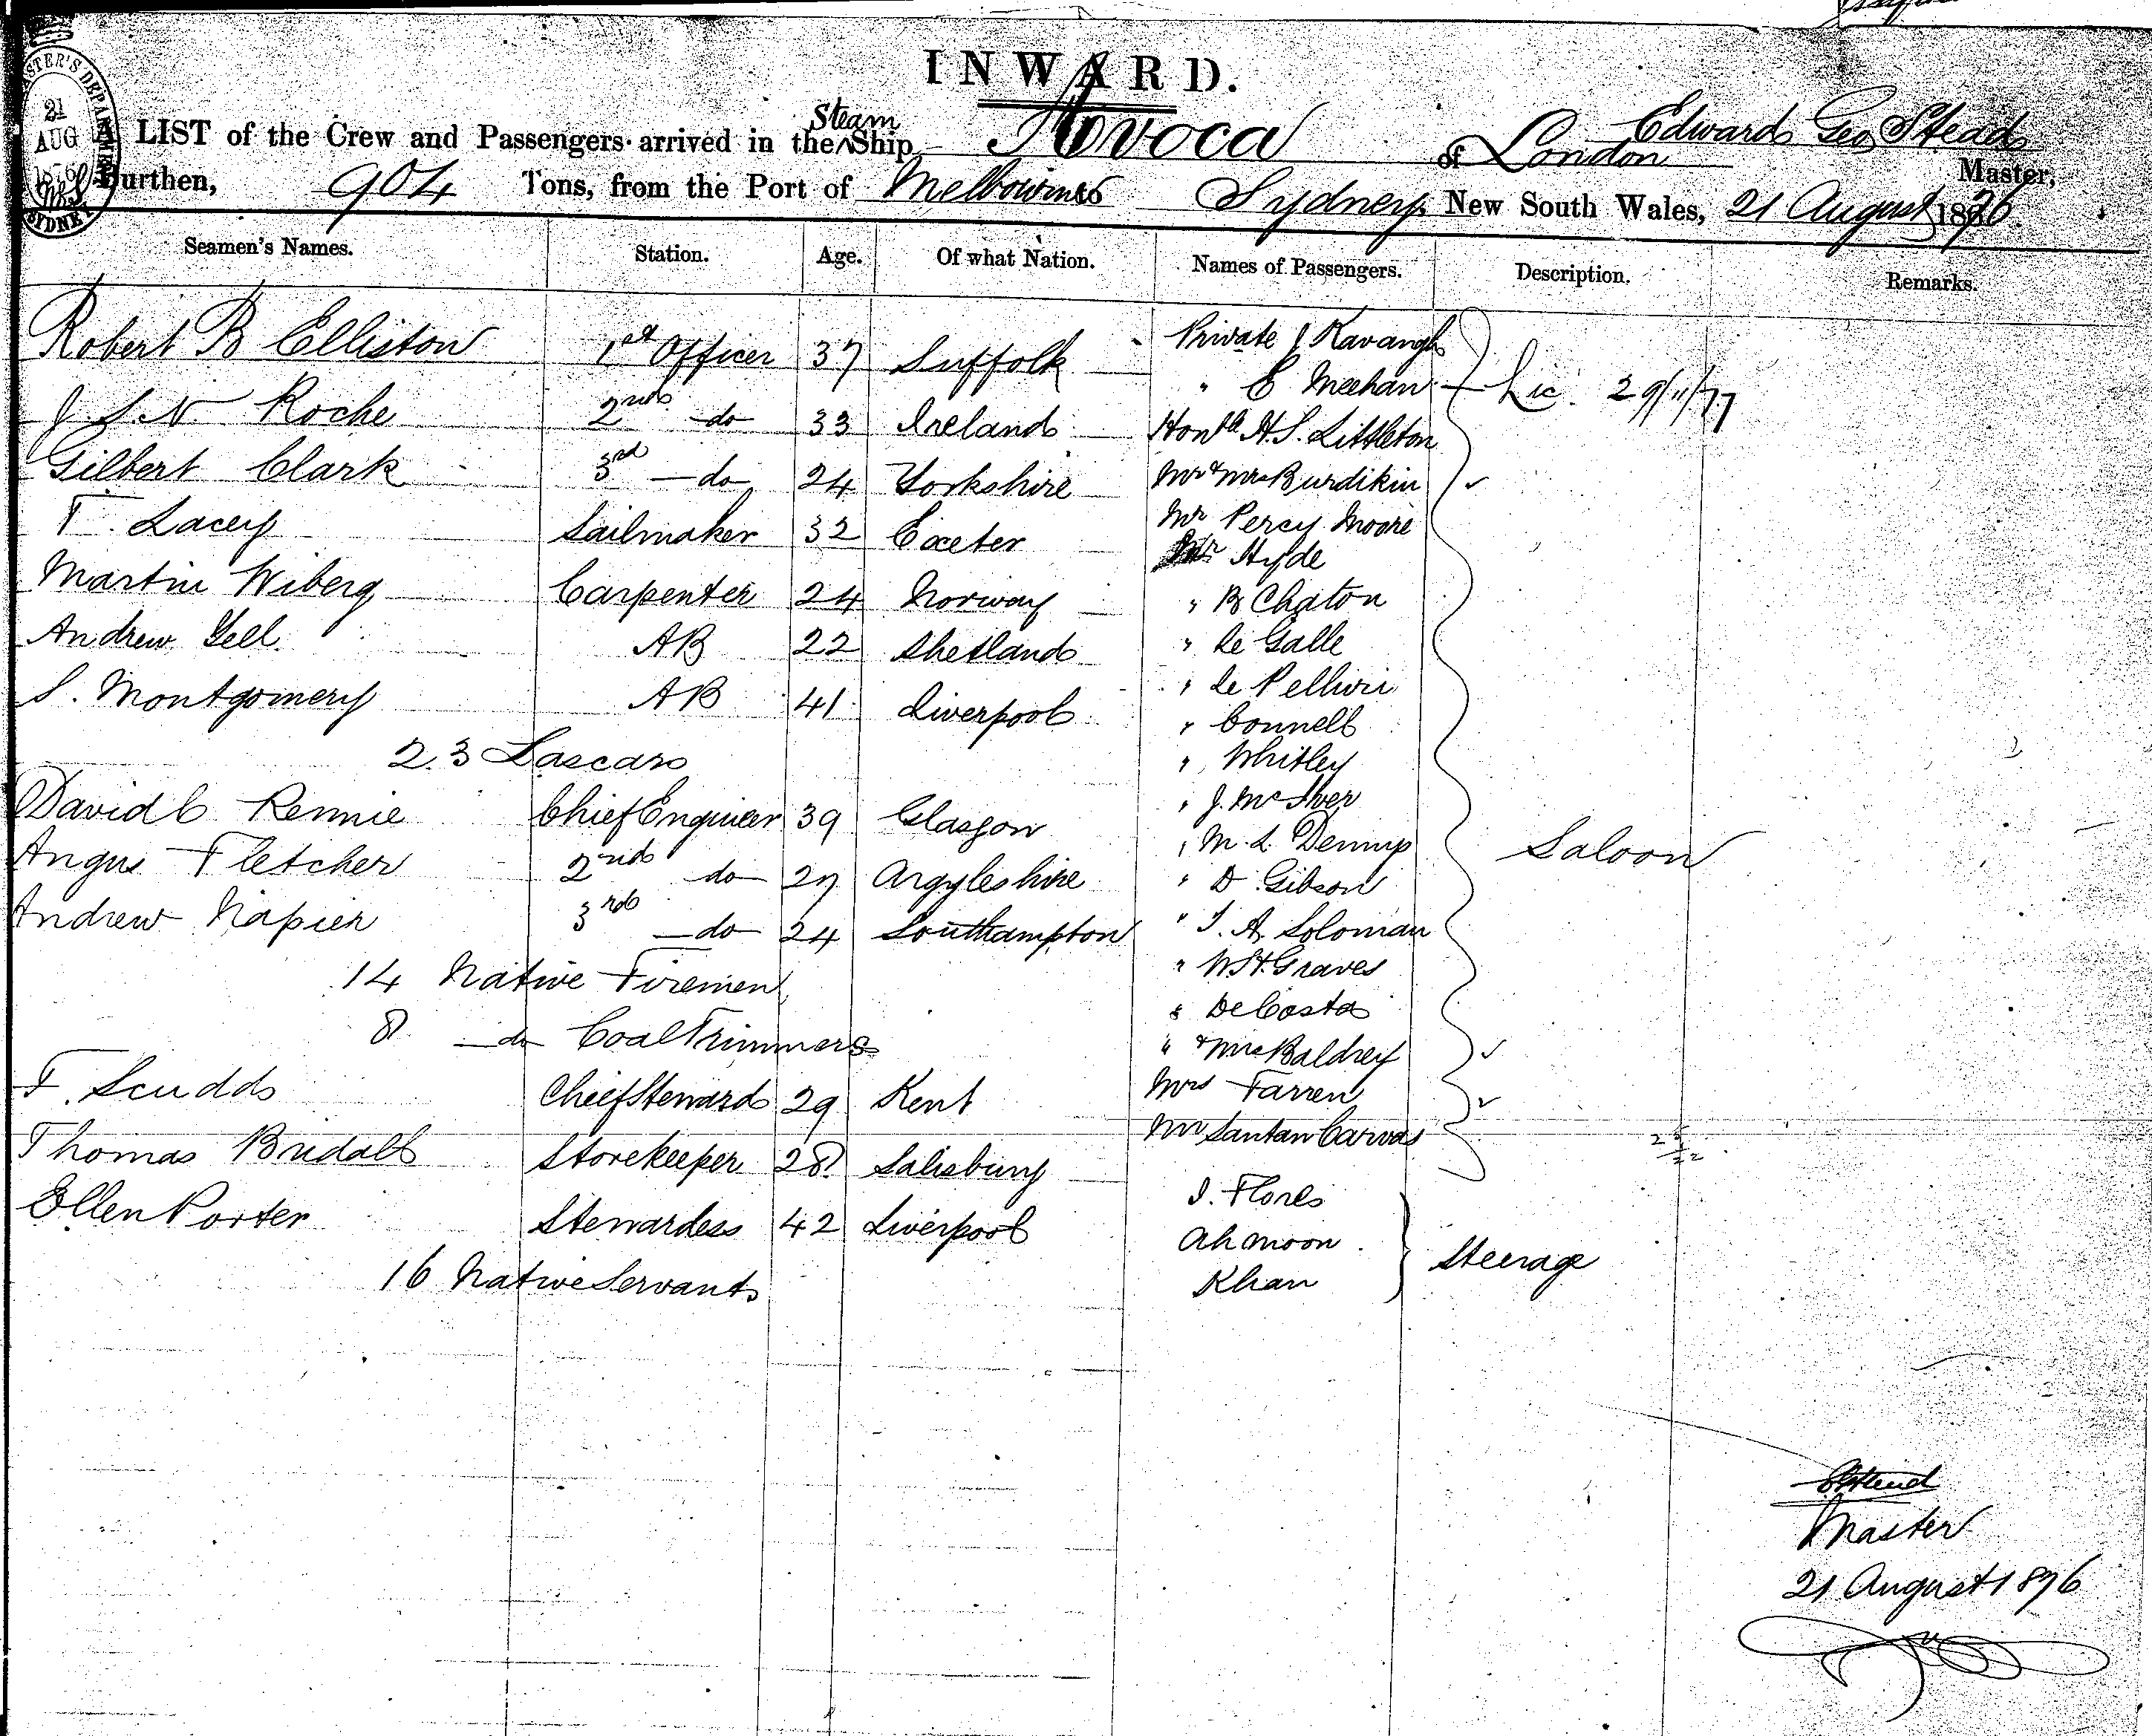 INWARD.
STER'S DEPARTMENT
21
AUG
1876
SYDNEY
A LIST of the Crew and Passengers arrived in the Steam Ship Avoca of London Edward Geo Stead Master,
Burthen, 904 Tons, from the Port of Melbourne Sydney New South Wales, 21 August 1876
Seamen's Names. Station. Age. Of what Nation. Names of Passengers. Description. Remarks.
Robert B Elliston 1st Officer 37 Suffolk
J. S. N Roche 2nd do 33 Ireland
Gilbert Clark 3rd do 24 Yorkshire
T. Lacey Sailmaker 32 Exeter
Martin Wiberg Carpenter 24 Norway
Andrew Yell AB 22 Shetland
S. Montgomery AB 41 Liverpool
23 Lascars
David C Rennie Chief Engineer 39 Glasgow
Angus Fletcher 2nd do 27 Argyleshire
Andrew Napier 3rd do 24 Southampton
14 Native Firemen
8 do Coal Trimmers
F. Scudds Chief Steward 29 Kent
Thomas Bridall Storekeeper 28 Salisbury
Ellen Porter Stewardess 42 Liverpool
16 Native Servants
Private J Kavangh
" E Meehan
Lic. 29/11/77
Honble H.S. Littleton
Mr & Mrs Burdikin
Mr Percy Moore
Mr Hyde
" B Chaton
" Le Galle
" Le Pellivir
" Connell
" Whitley
" J. McIver
" M. L. Dennys
" D Gibson
" J. A. Soloman
" W H Graves
" De Costa
" & Mrs Baldrey
Mrs Farren
Mr Santan Carvas
Saloon
I. Flores
Ah moon
Khan
Steerage
Master
21 August 1876